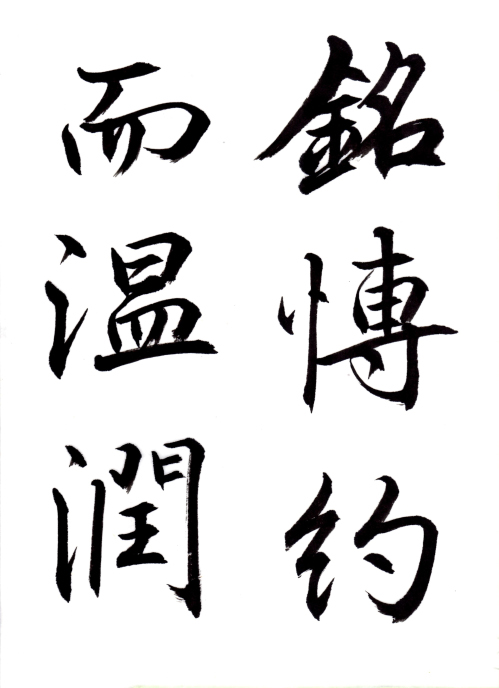 銘愽約
而温潤